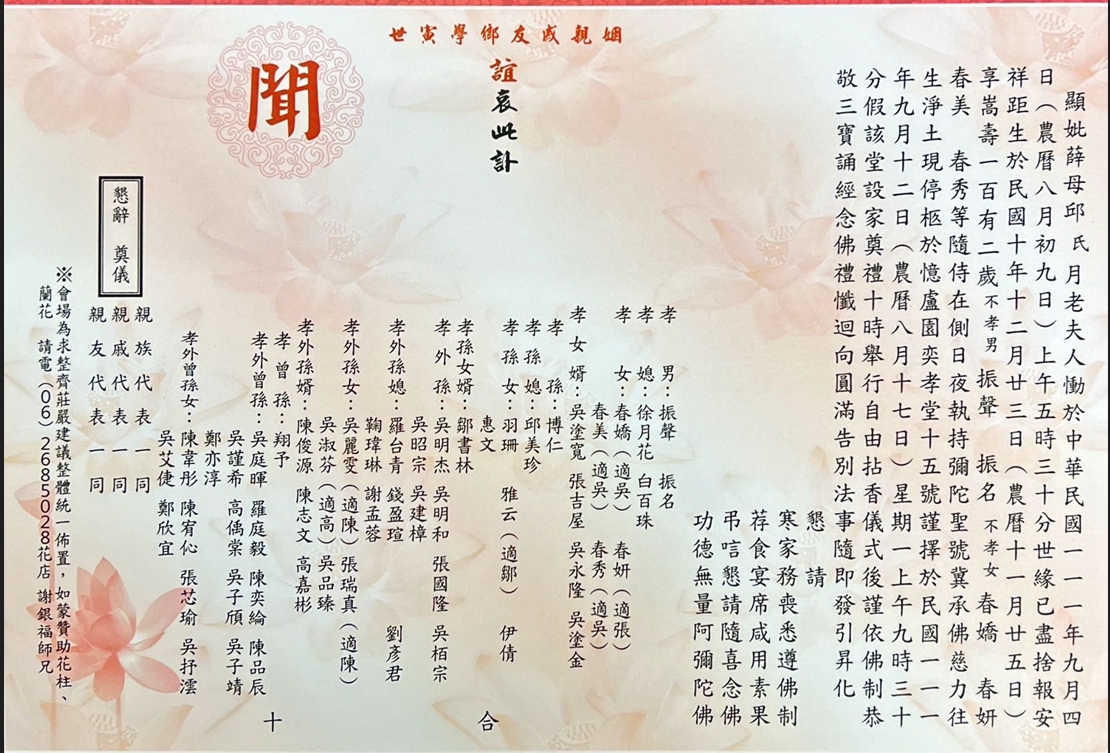 顯妣薛母邱氏月老夫人慟於中華民國一一一年九月四
日（農曆八月初九日）上午五時三十分世緣已盡捨報安
祥距生於民國十年十二月廿三日（農曆十一月廿五日）
享嵩壽一百有二歲不孝男 振聲 振名 不孝女 春嬌 春妍
春美 春秀等隨侍在側日夜執持彌陀聖號冀承佛慈力往
生淨土現停柩於憶廬園奕孝堂十五號謹擇於民國一一一
年九月十二日（農曆八月十七日）星期一上午九時三十
分假該堂設家奠禮十時舉行自由拈香儀式後謹依佛制恭
敬三寶誦經念佛禮懺迴向圓滿告別法事隨即發引昇化
懇請
寒家務喪悉遵佛制
荐食宴席咸用素果
弔唁懇請隨喜念佛
功德無量阿彌陀佛
孝 男：振聲 振名
孝 媳：徐月花 白百珠
孝 女：春嬌（適吳） 春妍（適張）
春美（適吳） 春秀（適吳）
孝 女 婿：吳塗寬 張吉屋 吳永隆 吳塗金
孝 孫：博仁
孝 孫 媳：邱美珍
孝 孫 女：羽珊 雅云（適鄒） 伊倩
惠文
孝孫女婿：鄒書林
孝 外 孫：吳明杰 吳明和 張國隆 吳栢宗
吳昭宗 吳建樟
孝外孫媳：羅台青 錢盈瑄 劉彥君
鞠瑋琳 謝孟蓉
孝外孫女：吳麗雯（適陳）張瑞真（適陳）
吳淑芬（適高）吳品臻
孝外孫婿：陳俊源 陳志文 高嘉彬
孝 曾 孫：翔予
孝外曾孫：吳庭暉 羅庭毅 陳奕綸 陳品辰
吳謹希 高偊棠 吳子頎 吳子靖
鄭亦淳
孝外曾孫女：陳韋彤 陳宥伈 張芯瑜 吳抒澐
吳艾倢 鄭欣宜
親族代表一同
親戚代表一同
親友代表一同
姻親戚友鄉學寅世
誼哀此訃
聞
懇辭 奠儀
※會場為求整齊莊嚴建議整體統一佈置，如蒙贊助花柱、
蘭花 請電（06）2685028花店 謝銀福師兄
合
十